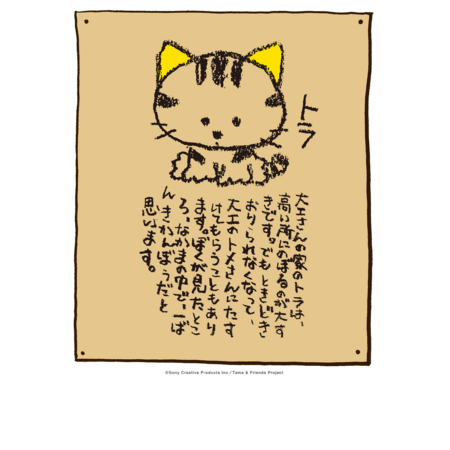 トラ
大工さんの家のトラは、
高い所にのぼるのが大す
きです。でもときどき
おりられなくなって、
大工のトメさんにたす
けてもらうこともあり
ます。ぼくが見たとこ
ろ、なかまの中で、一ば
んきかんぼうだと
思います。
©Sony Creative Products Inc./Tama & Friends Project